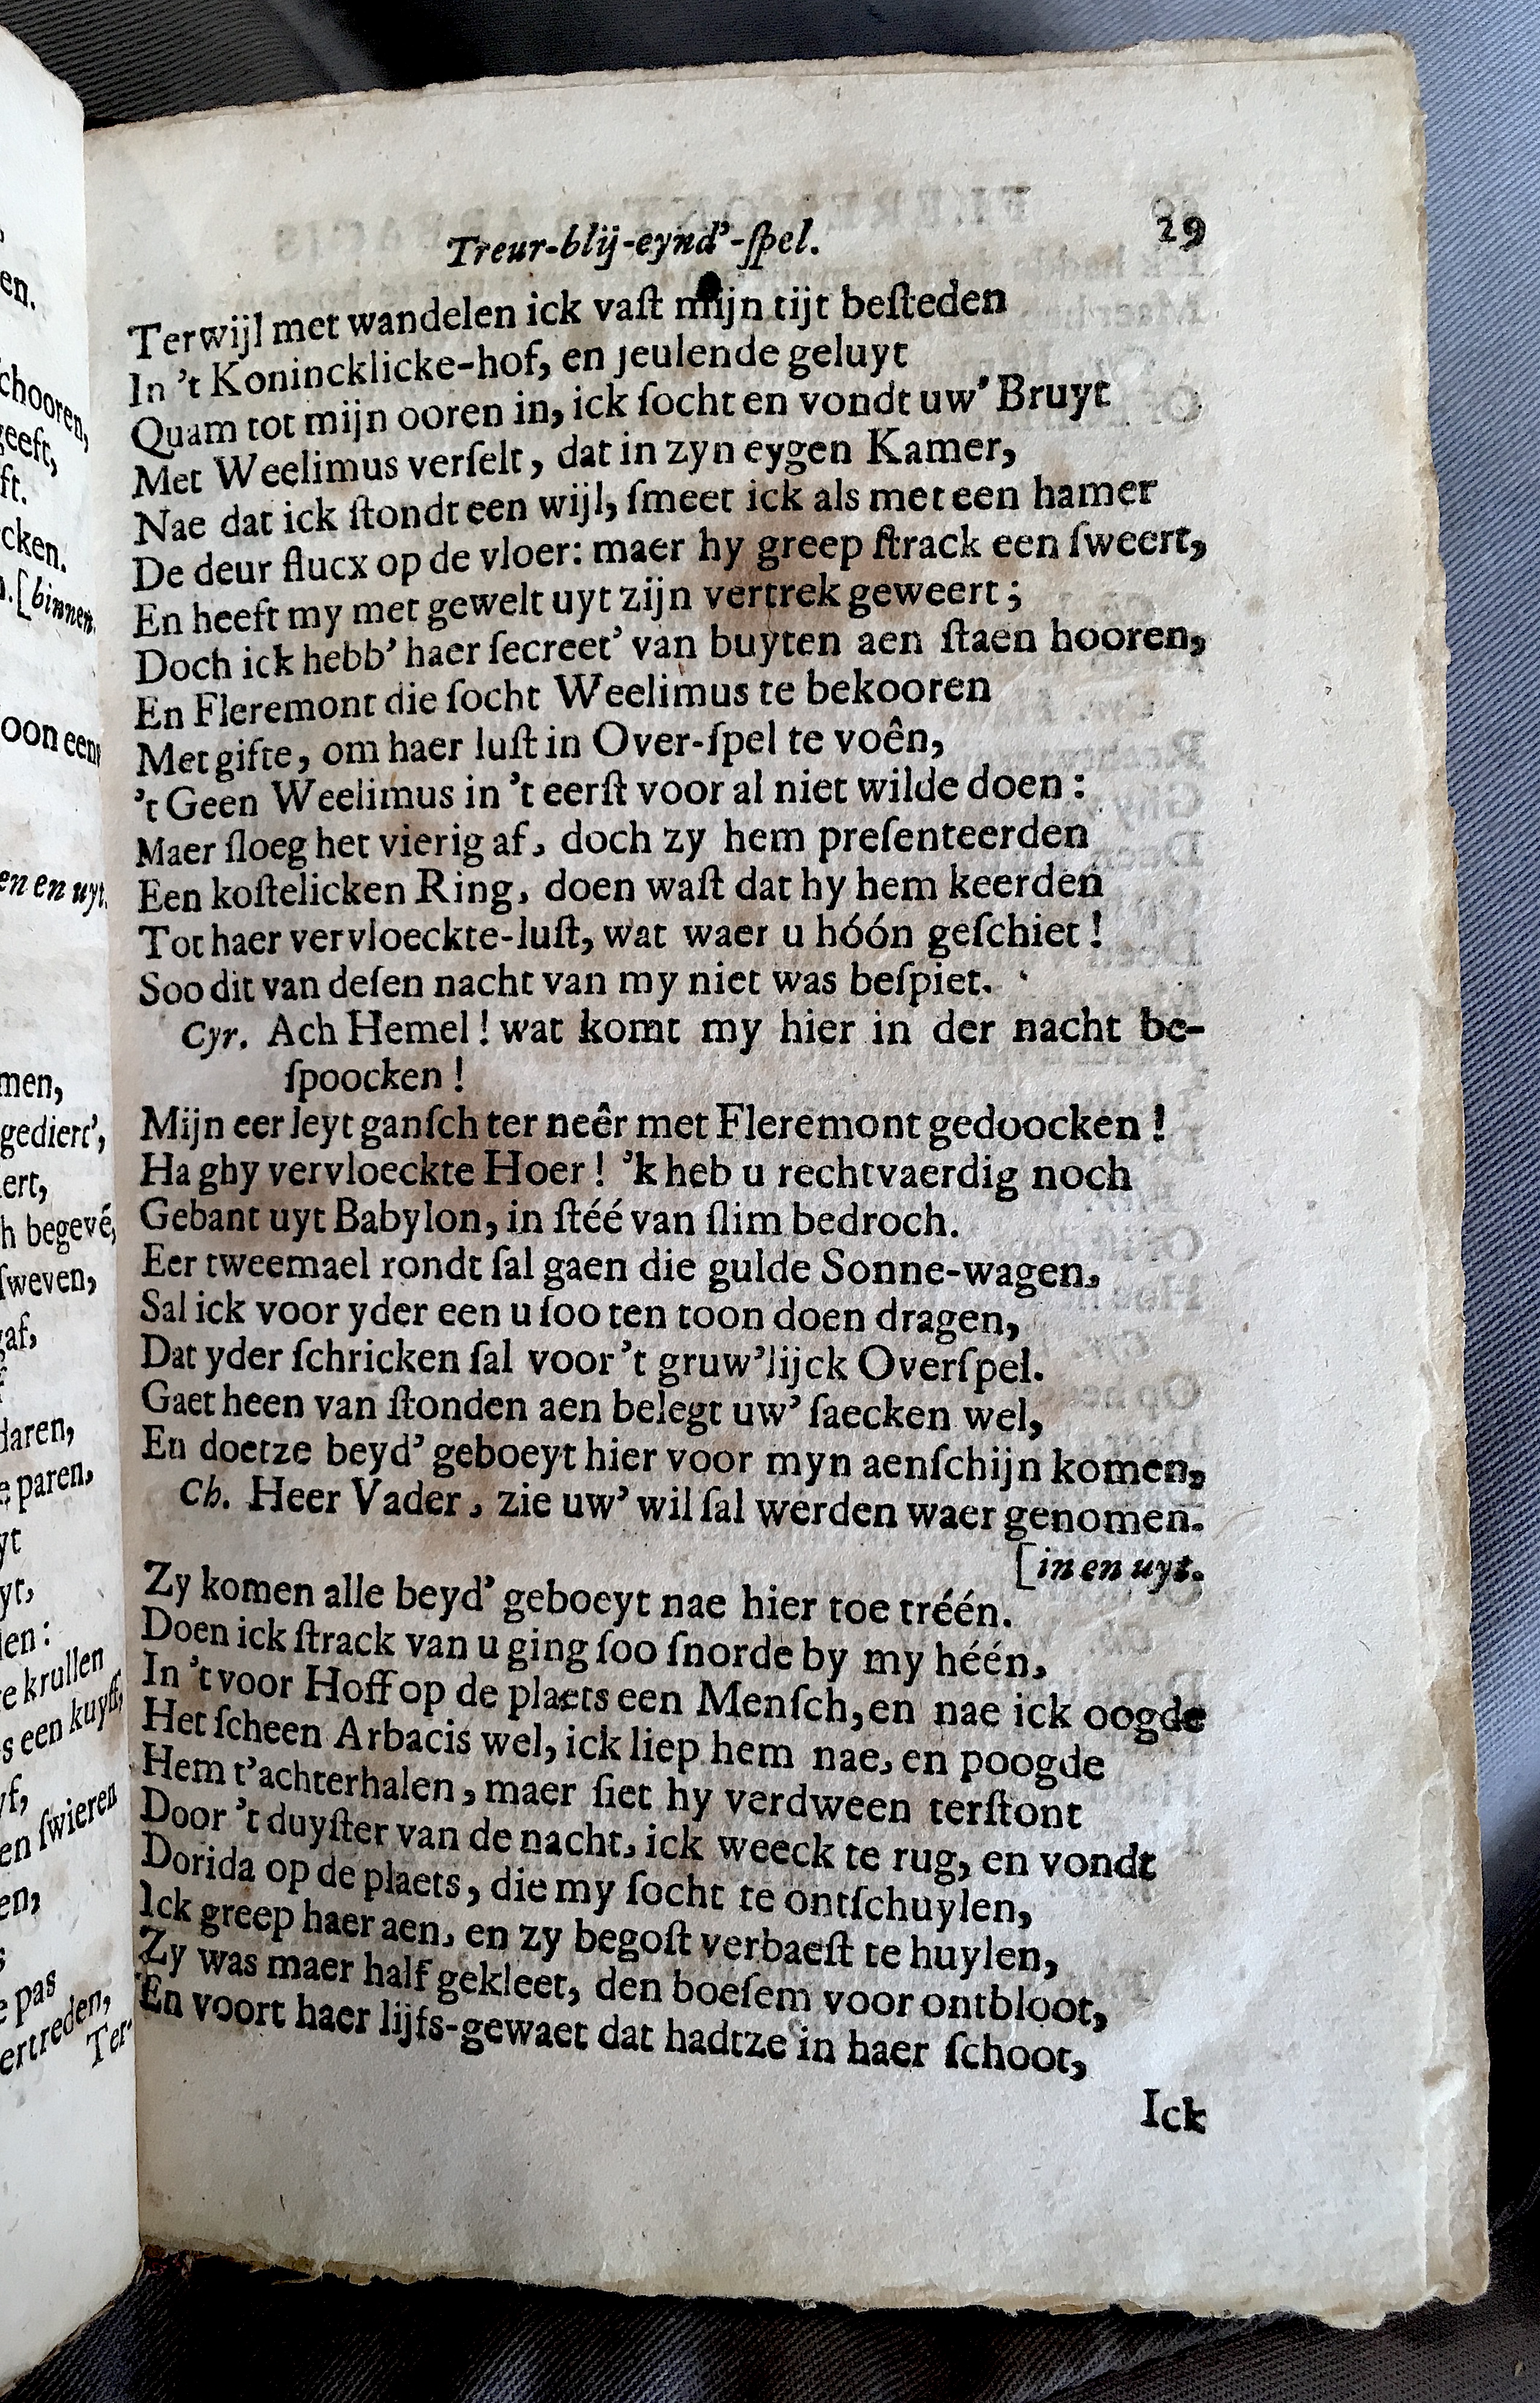 Treur-blij-eynd'-ſpel. 29
Terwijl met wandelen ick vaſt mijn tijt beſteden
In 't Konincklicke-hof, en jeulende geluyt
Quam tot mijn ooren in, ick ſocht en vondt uw' Bruyt
Met Weelimus verſelt, dat in zyn eygen Kamer,
Nae dat ick ſtondt een wijl, ſmeet ick als met een hamer
De deur flucx op de vloer: maer hy greep ſtrack een ſweert,
En heeft my met gewelt uyt zijn vertrek geweert;
Doch ick hebb' haer ſecreet' van buyten aen ſtaen hooren,
En Fleremont die ſocht Weelimus te bekooren
Met gifte, om haer luſt in Over-ſpel te voên,
't Geen Weelimus in 't eerſt voor al niet wilde doen:
Maer ſloeg het vierig af, doch zy hem preſenteerden
Een koſtelicken Ring, doen waſt dat hy hem keerden
Tot haer vervloeckte-luſt, wat waer u hóón geſchiet!
Soo dit van deſen nacht van my niet was beſpiet.
Cyr. Ach Hemel! wat komt my hier in der nacht be-
ſpoocken!
Mijn eer leyt ganſch ter neêr met Fleremont gedoocken!
Ha ghy vervloeckte Hoer! 'k heb u rechtvaerdig noch
Gebant uyt Babylon, in ſtéé van ſlim bedroch.
Eer tweemael rondt ſal gaen die gulde Sonne-wagen,
Sal ick voor yder een u ſoo ten toon doen dragen,
Dat yder ſchricken ſal voor 't gruw'lijck Overſpel.
Gaet heen van ſtonden aen belegt uw' ſaecken wel,
En doetze beyd' geboeyt hier voor myn aenſchijn komen,
Ch. Heer Vader, zie uw' wil ſal werden waer genomen.
[in en uyt.
Zy komen alle beyd' geboeyt nae hier toe tréén.
Doen ick ſtrack van u ging ſoo ſnorde by my héén,
In 't voor Hoff op de plaets een Menſch, en nae ick oogde
Het ſcheen Arbacis wel, ick liep hem nae, en poogde
Hem t'achterhalen, maer ſiet hy verdween terſtont
Door 't duyſter van de nacht, ick weeck te rug, en vondt
Dorida op de plaets, die my ſocht te ontſchuylen,
Ick greep haer aen, en zy begoſt verbaeſt te huylen,
Zy was maer half gekleet, den boeſem voor ontbloot,
En voort haer lijfs-gewaet dat hadtze in haer ſchoot,
Ick